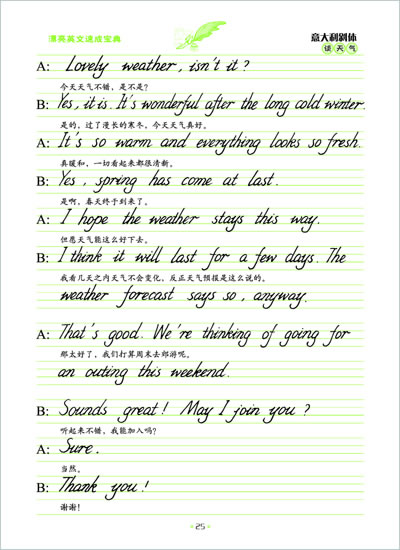 漂亮英文速成宝典
意大利斜体
谈天气
A: Lovely weather, isn't it?
今天天气不错，是不是?
B: Yes, it is. It's wonderful after the long cold winter.
是的，过了漫长的寒冬，今天天气真好。
A: It's so warm and everything looks so fresh.
真暖和，一切看起来都很清新。
B: Yes, spring has come at last.
是啊，春天终于到来了。
A: I hope the weather stays this way.
但愿天气能这么好下去。
B: I think it will last for a few days. The
我看几天之内天气不会变化，反正天气预报是这么说的。
weather forecast says so, anyway.
A: That's good. We're thinking of going for
那太好了，我们打算周末去郊游呢。
an outing this weekend.
B: Sounds great! May I join you?
听起来不错，我能加入吗?
A: Sure.
当然。
B: Thank you!
谢谢!
25